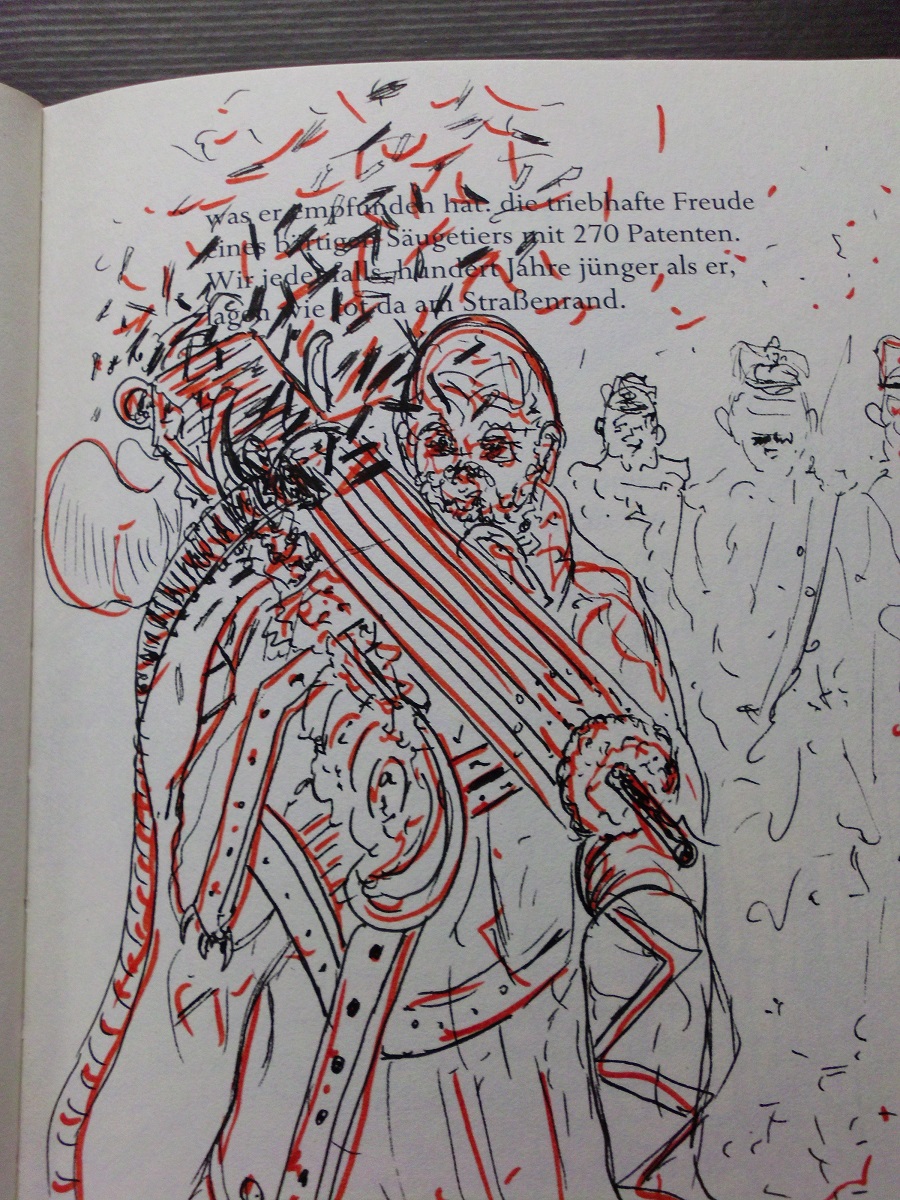 was er empfunden hat: die triebhafte Freude
eines bärtigen Säugetiers mit 270 Patenten.
Wir jedenfalls, hundert Jahre jünger als er,
lagen wie tot da am Straßenrand.